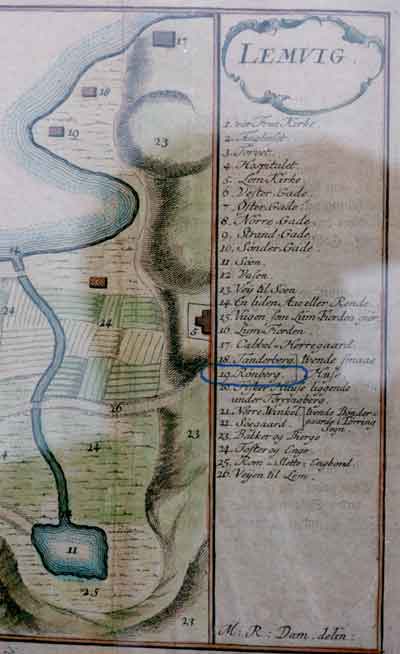 LEMVIG.
1. vor Frue Kirke.
3. Torvet.
4. Hospitalet.
5. Lem Kirke
6. Vester Gade.
7. Øster Gade.
8. Nørre Gade.
9. Strand Gade.
10. Sønder Gade.
11. Søen.
12. Vasen
13. Vey til Søen
14. En liden Aae eller Rende.
15. Viigen som Liim Fiorden giør
16. Liim Fiorden
17. Cabbel-Herregaard.
18. Sanderberg. tvende smaae
19. Rønberg. Huse
20. Huuse liggende
under Torringberg.
21. Nørre Winkel tvende Bønder-
22. Søegaard. gaarde i Torring
Sogn
23. Bakker og Bierge
24. Tofter og Enge.
25. Rom-Slette-Engbond.
26. Veyen til Lem.
M: R: Dam. delin:
17
18
19
23
24
24
5
26
23
24
11
25
23